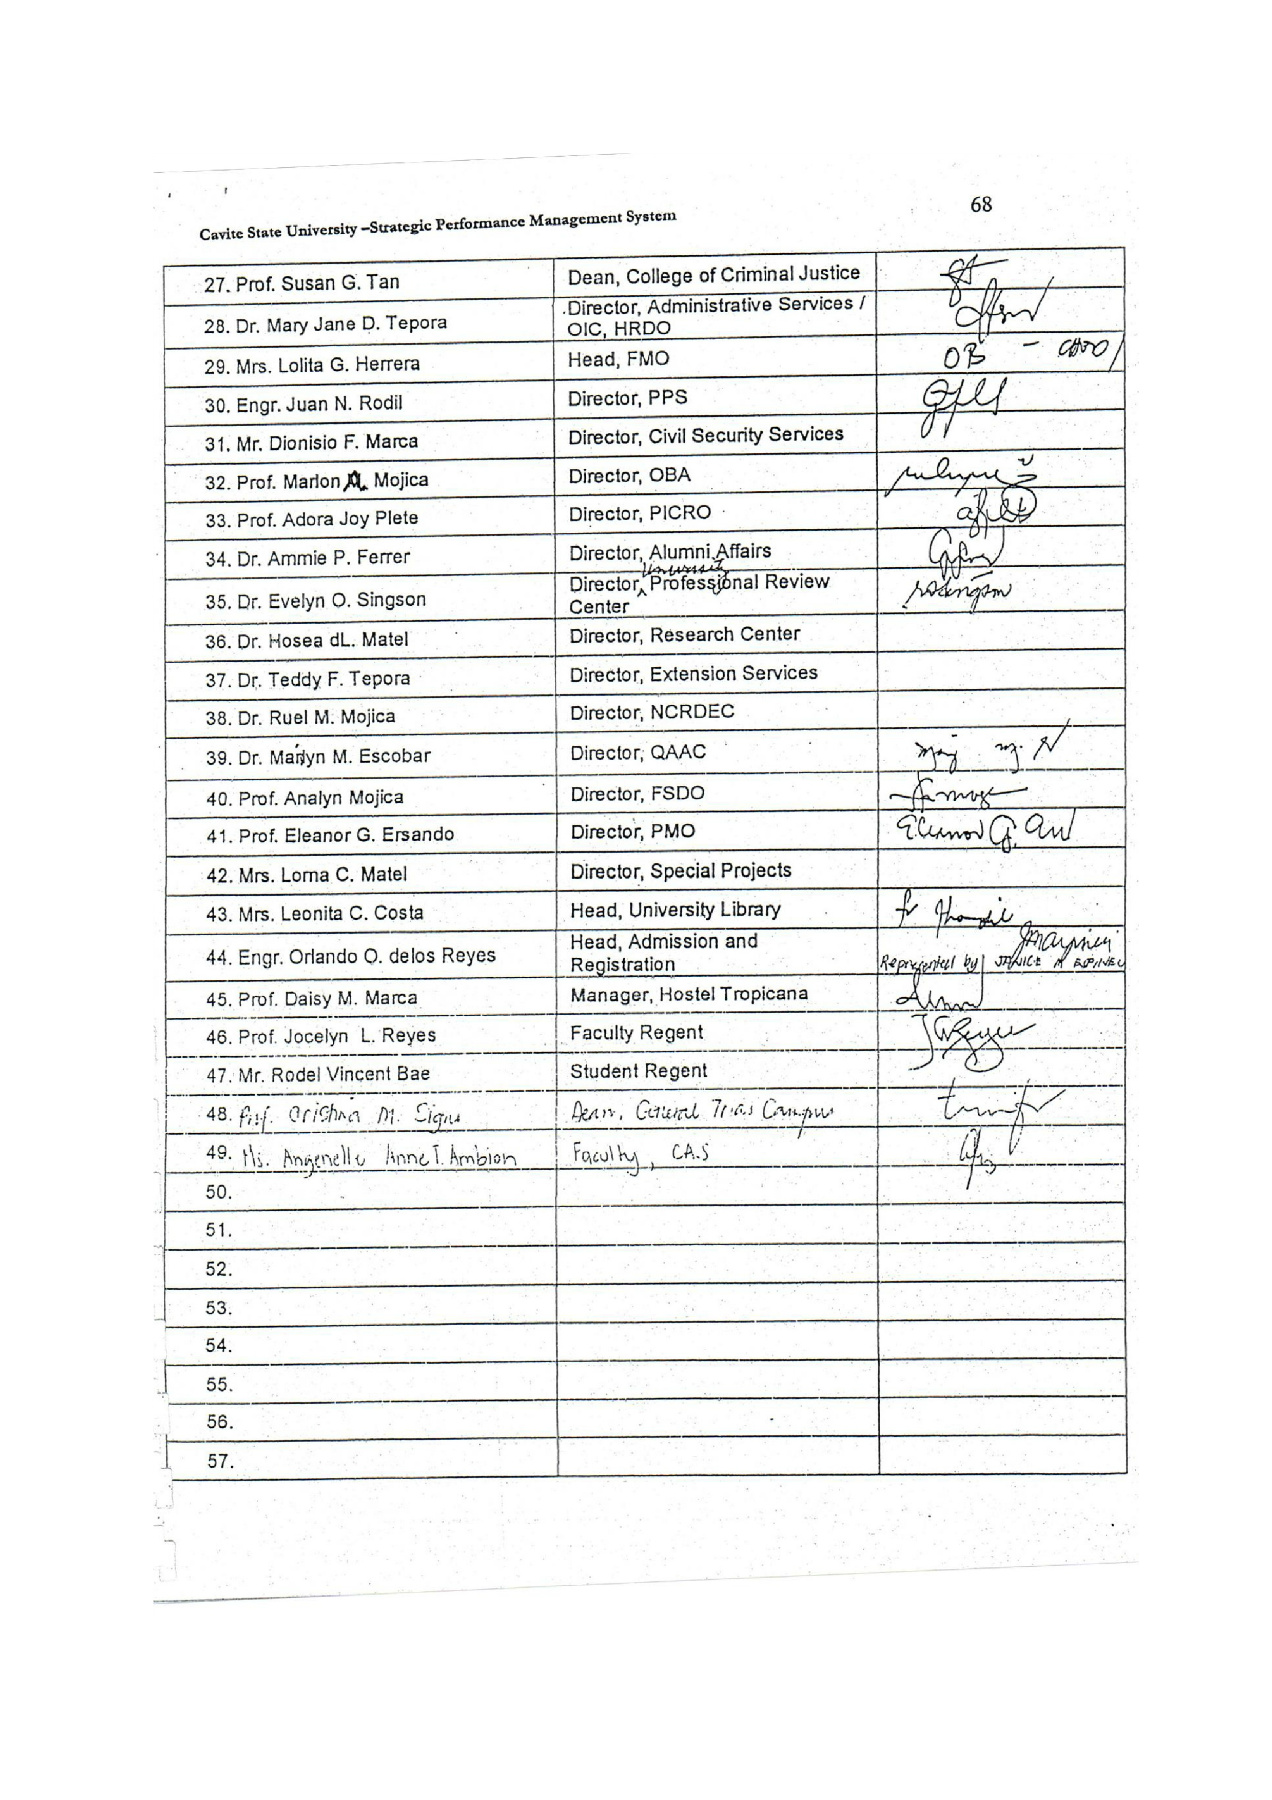 68
Cavite State University –Strategic Performance Management System
27. Prof. Susan G. Tan Dean, College of Criminal Justice
28. Dr. Mary Jane D. Tepora Director, Administrative Services /
OIC, HRDO
29. Mrs. Lolita G. Herrera Head, FMO OB -
30. Engr. Juan N. Rodil Director, PPS
31. Mr. Dionisio F. Marca Director, Civil Security Services
32. Prof. Marlon A. Mojica Director, OBA
33. Prof. Adora Joy Plete Director, PICRO
34. Dr. Ammie P. Ferrer Director, Alumni Affairs
University
35. Dr. Evelyn O. Singson Director, Professional Review
Center
36. Dr. Hosea dL. Matel Director, Research Center
37. Dr. Teddy F. Tepora Director, Extension Services
38. Dr. Ruel M. Mojica Director, NCRDEC
39. Dr. Marlyn M. Escobar Director, QAAC
40. Prof. Analyn Mojica Director, FSDO
41. Prof. Eleanor G. Ersando Director, PMO Eleanor G.
42. Mrs. Lorna C. Matel Director, Special Projects
43. Mrs. Leonita C. Costa Head, University Library
44. Engr. Orlando O. delos Reyes Head, Admission and
Registration Represented by JANICE M ESPINELI
45. Prof. Daisy M. Marca Manager, Hostel Tropicana
46. Prof. Jocelyn L. Reyes Faculty Regent
47. Mr. Rodel Vincent Bae Student Regent
48. Prof. Cristina M. Signo Dean, General Trias Campus
49. Ms. Angenelle Anne T. Ambion Faculty, CAS
50.
51.
52.
53.
54.
55.
56.
57.